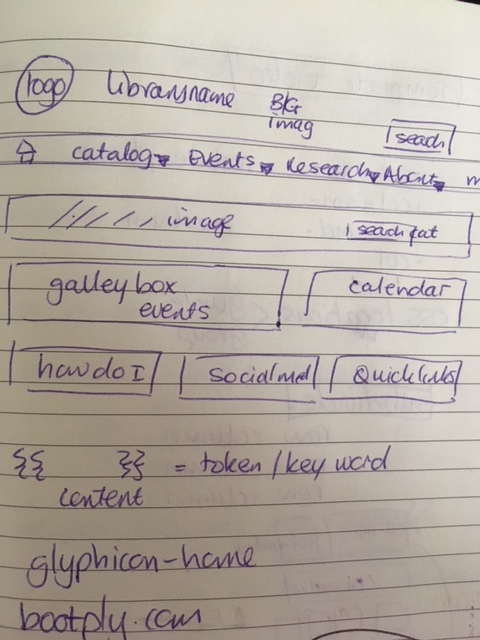 logo Libraryname BKG
imag
seach
catalog Events Research About m
image seach cat
galley box calendar
events
how do I Social med Quick links
{{ }} = token / key word
content
glyphicon-home
bootply.com